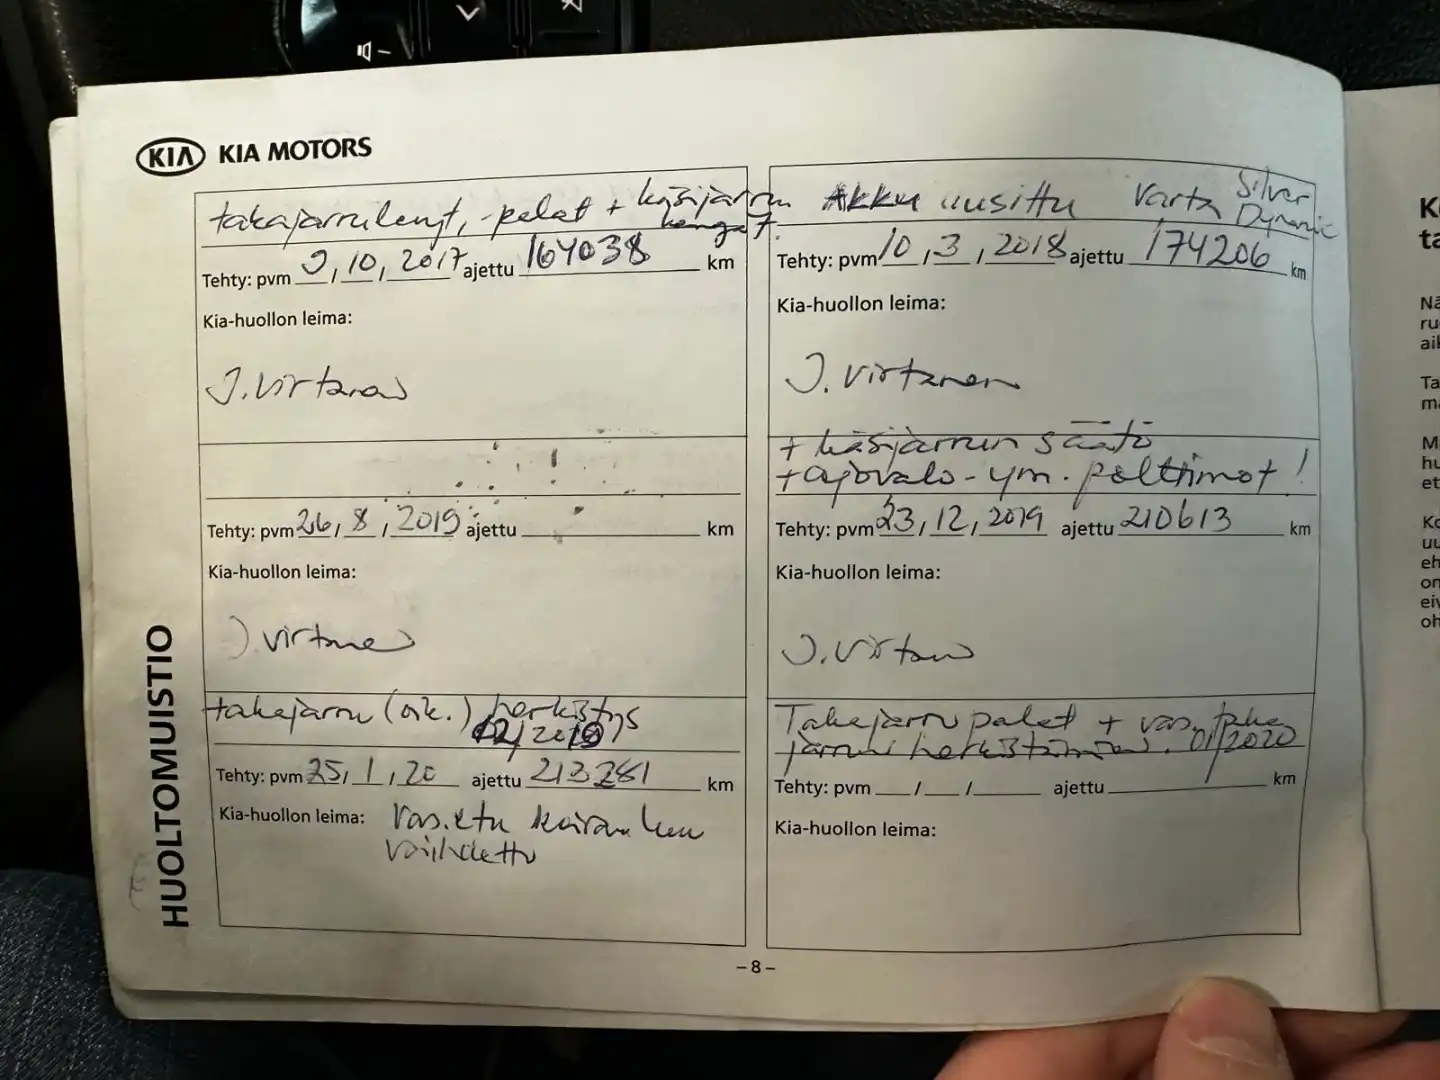 KIA KIA MOTORS
takajarrulevyt, -palat + käsijarrun
kengät.
Tehty: pvm 9, 10, 2017 ajettu 164038 km
Kia-huollon leima:
J. Virtanen
Akku uusittu Varta Silver
Dynamic
Tehty: pvm 10, 3, 2018 ajettu 174206 km
Kia-huollon leima:
J. Virtanen
Tehty: pvm 26, 8, 2019 ajettu km
Kia-huollon leima:
J. Virtanen
+ käsijarrun säätö
+ ajovalo- ym. polttimot!
Tehty: pvm 23, 12, 2019 ajettu 210613 km
Kia-huollon leima:
J. Virtanen
takajarru (oik.) herkistys
12/2019
Tehty: pvm 25, 1, 20 ajettu 213281 km
Kia-huollon leima: Vas. etu
vaihdettu
Takajarrupalat + vas. taka
jarrun herkistäminen. 01/2020
Tehty: pvm / / ajettu km
Kia-huollon leima:
HUOLTOMUISTIO
– 8 –
ta
Nä
ru
Ta
hu
et
uu
eh
on
eiv
oh